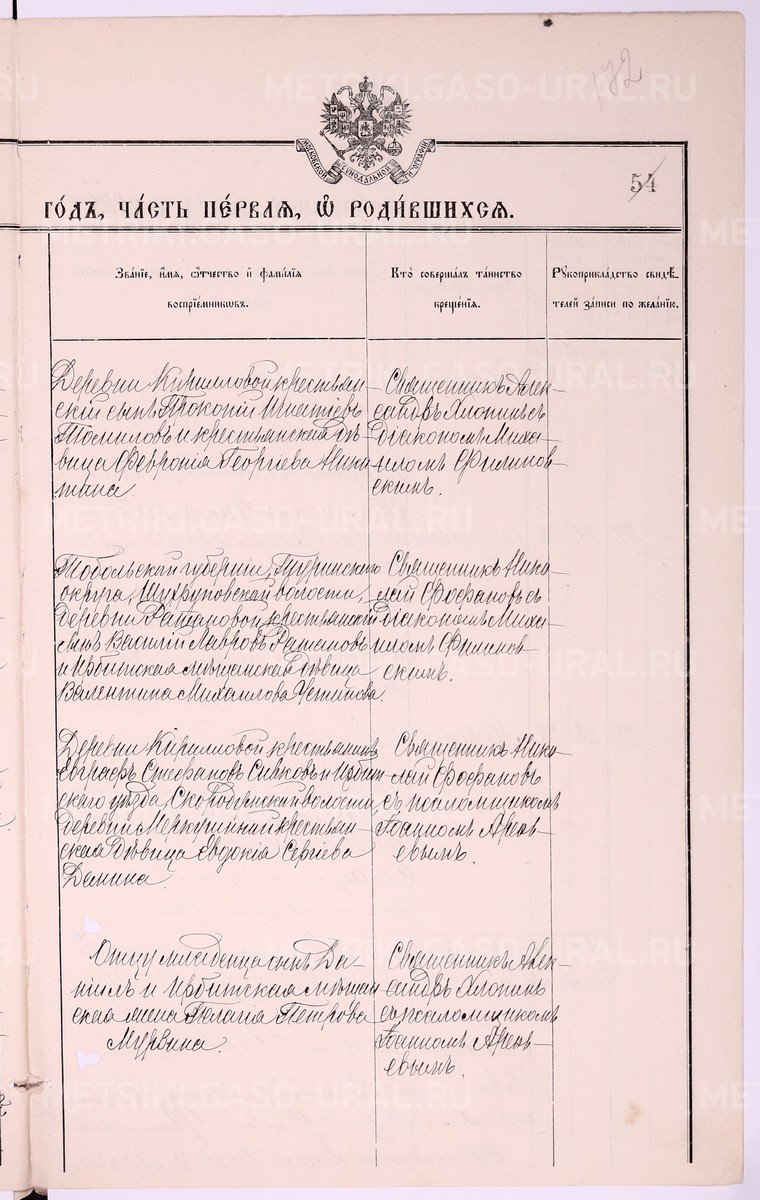 172
METRIKI.GASO-URAL.RU
МОСКОВСКОЙ СУНОДАЛЬНОЙ ТИПОГРАФІИ
54
ГО́ДЪ, ЧА́СТЬ ПЕ́РВАЯ, Ѡ҆ РОДИ́ВШИХСЯ.
Зва́нїе, и҆́мя, ѻ҆́тчество и҆ фами́лїя
воспрїе́мниковъ.
Кто̀ соверша́лъ та́инство
креще́нїя.
Рꙋкоприкла́дство свидѣ́-
телей за́писи по жела́нїю.
Деревни Кирилловой крестьян-
скій сынъ Прокопій Игнатіевъ
Томиловъ и крестьянская дѣ-
вица Февронія Георгіева Ники-
тина.
Священникъ Алек-
сандръ Хлопинъ съ
діакономъ Миха-
иломъ Филинов-
скимъ.
Тобольской губерніи, Туринскаго
округа, волости,
деревни крестьянскій
сынъ Василій Лавровъ
и Ирбитская мѣщанская дѣвица
Валентина Михаилова Устинова.
Священникъ Нико-
лай Феофановъ съ
діакономъ Миха-
иломъ Филинов-
скимъ.
Деревни Кирилловой крестьянинъ
Евграфъ Стефановъ Сивковъ и Ирбит-
скаго уѣзда, Скородумской волости,
деревни крестьян-
ская дѣвица Евдокія Сергіева
Демина.
Священникъ Нико-
лай Феофановъ
съ псаломщикомъ
Іоанномъ Ареѳ-
евымъ.
Отцу младенца сынъ Да-
ніилъ и Ирбитская мѣщан-
ская жена Пелагія Петрова
Мурзина.
Священникъ Алек-
сандръ Хлопинъ
съ псаломщикомъ
Іоанномъ Ареѳ-
евымъ.